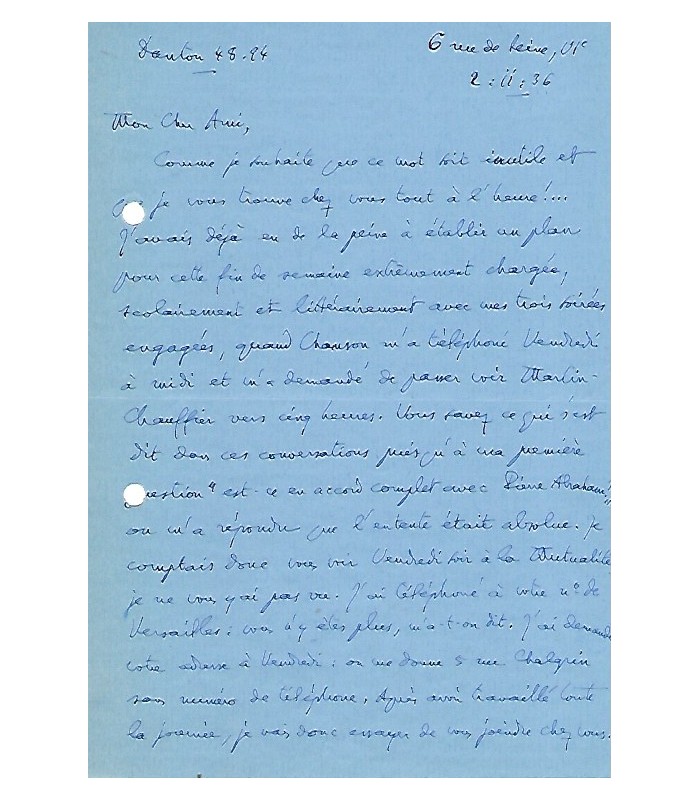 Danton 48-94
6 rue de Seine, VIe
2 : II : 36
Mon Cher Ami,
Comme je souhaite que ce mot soit inutile et
que je vous trouve chez vous tout à l'heure !...
J'avais déjà eu de la peine à établir un plan
pour cette fin de semaine extrêmement chargée,
scolairement et littérairement avec mes trois soirées
engagées, quand Chamson m'a téléphoné Vendredi
à midi et m'a demandé de passer voir Martin-
Chauffier vers cinq heures. Vous savez ce qui s'est
dit dans ces conversations puisqu'à ma première
question "est-ce en accord complet avec Pierre Abraham"
on m'a répondu que l'entente était absolue. Je
comptais donc vous voir Vendredi soir à la Mutualité
je ne vous y ai pas vu. J'ai téléphoné à votre n° de
Versailles : vous n'y êtes plus, m'a-t-on dit. J'ai demandé
votre adresse à Vendredi : on me donne 5 rue Chalgrin
sans numéro de téléphone. Après avoir travaillé toute
la journée, je vais donc essayer de vous joindre chez vous.